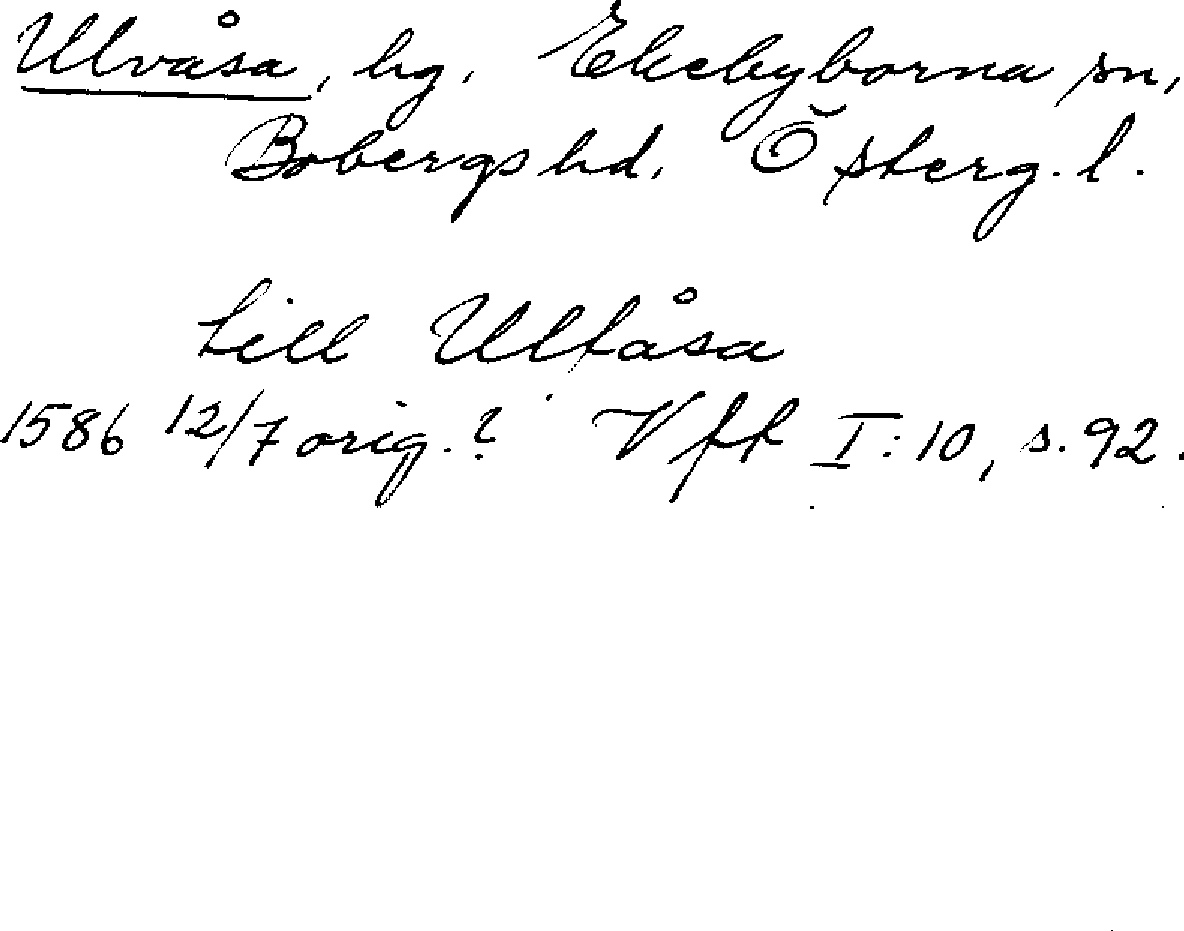 Ulvåsa, hg. Ekebyborna sn,
Bobergs hd. Österg. l.
till Ulfåsa
1586 12/7 orig.? Vfk I:10, s. 92.